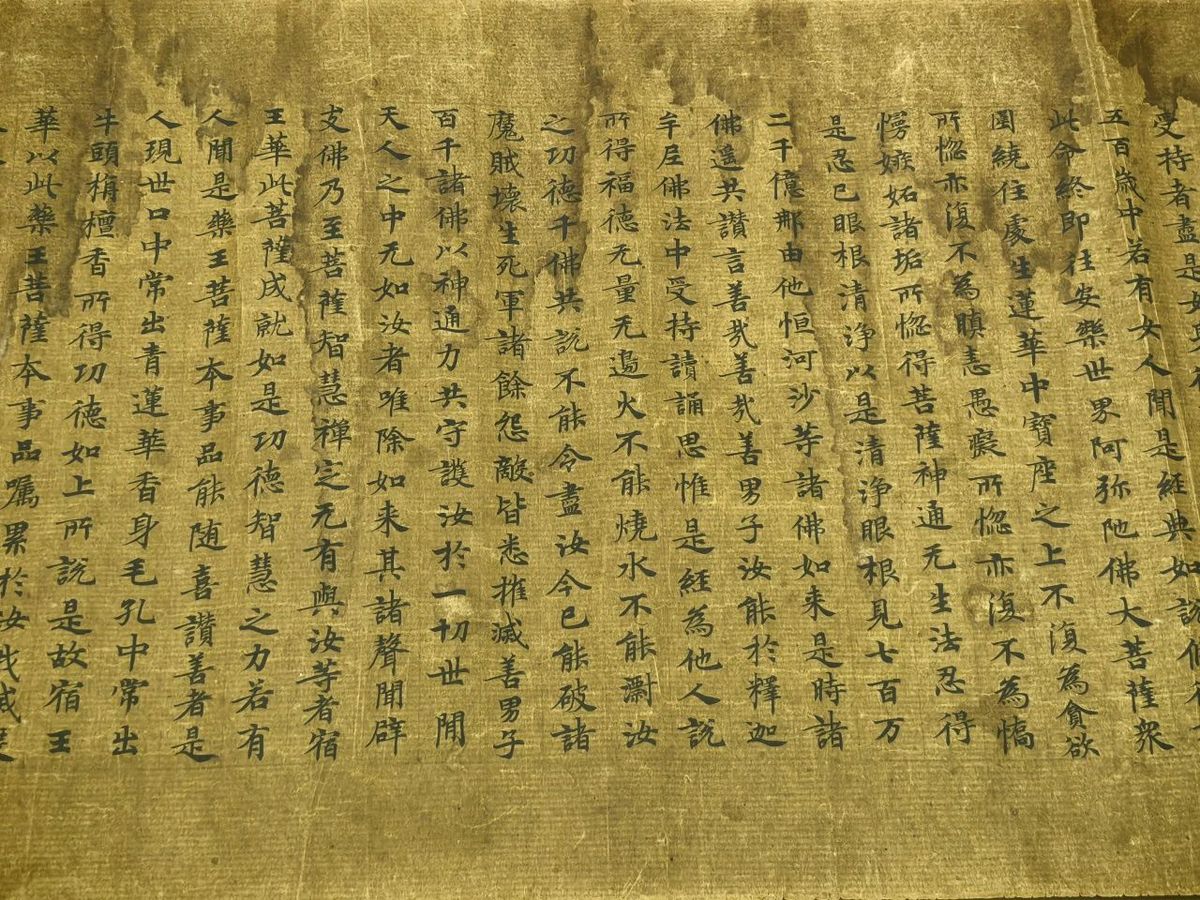 受持者盡是
五百歳中若有女人聞是經典如說脩
此命終即往安樂世界阿弥陁佛大菩薩衆
圍繞住處生蓮華中寶座之上不復為貪欲
所惚亦復不為瞋恚愚癡所惚亦復不為憍
慢嫉妬諸垢所惚得菩薩神通无生法忍得
是忍已眼根清淨以是清淨眼根見七百万
二千億那由他恒河沙等諸佛如来是時諸
佛遙共讃言善㢤善㢤善男子汝能於釋迦
牟尼佛法中受持讀誦思惟是經為他人說
所得福德无量无邉火不能燒水不能漂汝
之功德千佛共說不能令盡汝今已能破諸
魔賊壞生死軍諸餘怨敵皆悉摧滅善男子
百千諸佛以神通力共守護汝於一切世間
天人之中无如汝者唯除如来其諸聲聞辟
支佛乃至菩薩智慧禪定无有與汝等者宿
王華此菩薩成就如是功德智慧之力若有
人聞是藥王菩薩本事品能随喜讃善者是
人現世口中常出青蓮華香身毛孔中常出
牛頭栴檀香所得功德如上所說是故宿王
華以此藥王菩薩本事品囑累於汝我滅